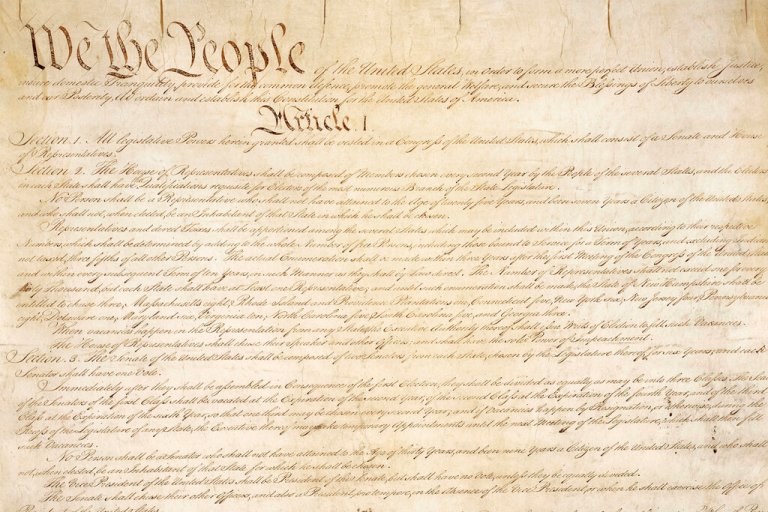 We the People of the United States, in Order to form a more perfect Union, establish Justice,
insure domestic Tranquility, provide for the common defence, promote the general Welfare, and secure the Blessings of Liberty to ourselves
and our Posterity, do ordain and establish this Constitution for the United States of America.
Article. I.
Section. 1. All legislative Powers herein granted shall be vested in a Congress of the United States, which shall consist of a Senate and House
of Representatives.
Section. 2. The House of Representatives shall be composed of Members chosen every second Year by the People of the several States, and the Electors
in each State shall have Qualifications requisite for Electors of the most numerous Branch of the State Legislature.
No Person shall be a Representative who shall not have attained to the Age of twenty five Years, and been seven Years a Citizen of the United States,
and who shall not, when elected, be an Inhabitant of that State in which he shall be chosen.
Representatives and direct Taxes shall be apportioned among the several States which may be included within this Union, according to their respective
Numbers, which shall be determined by adding to the whole Number of free Persons, including those bound to Service for a Term of Years, and excluding Indians
not taxed, three fifths of all other Persons. The actual Enumeration shall be made within three Years after the first Meeting of the Congress of the United States,
and within every subsequent Term of ten Years, in such Manner as they shall by Law direct. The Number of Representatives shall not exceed one for every
thirty Thousand, but each State shall have at Least one Representative; and until such enumeration shall be made, the State of New Hampshire shall be
entitled to chuse three, Massachusetts eight, Rhode Island and Providence Plantations one, Connecticut five, New York six, New Jersey four, Pennsylvania
eight, Delaware one, Maryland six, Virginia ten, North Carolina five, South Carolina five, and Georgia three.
When vacancies happen in the Representation from any State, the Executive Authority thereof shall issue Writs of Election to fill such Vacancies.
The House of Representatives shall chuse their Speaker and other Officers; and shall have the sole Power of Impeachment.
Section. 3. The Senate of the United States shall be composed of two Senators from each State, chosen by the Legislature thereof, for six Years; and each
Senator shall have one Vote.
Immediately after they shall be assembled in Consequence of the first Election, they shall be divided as equally as may be into three Classes. The Seats
of the Senators of the first Class shall be vacated at the Expiration of the second Year, of the second Class at the Expiration of the fourth Year, and of the third
Class at the Expiration of the sixth Year, so that one third may be chosen every second Year; and if Vacancies happen by Resignation, or otherwise, during the
Recess of the Legislature of any State, the Executive thereof may make temporary Appointments until the next Meeting of the Legislature, which shall then fill
such Vacancies.
No Person shall be a Senator who shall not have attained to the Age of thirty Years, and been nine Years a Citizen of the United States, and who shall
not, when elected, be an Inhabitant of that State for which he shall be chosen.
The Vice President of the United States shall be President of the Senate, but shall have no Vote, unless they be equally divided.
The Senate shall chuse their other Officers, and also a President pro tempore, in the Absence of the Vice President, or when he shall exercise the Office of
President of the United States.